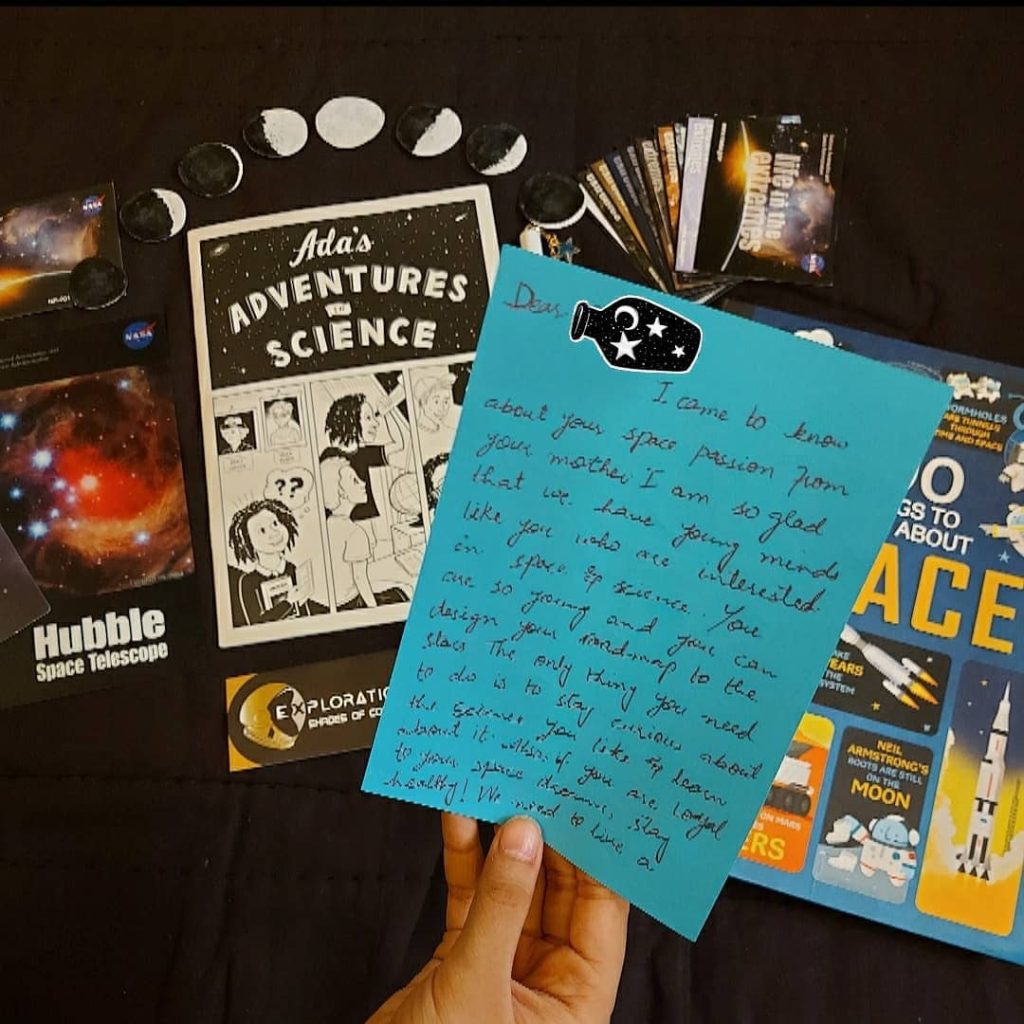 NASA
NP-401
NASA
Hubble
Space Telescope
Ada's
ADVENTURES
IN
SCIENCE
??
EXPLORATIO
SHADES OF CO
life in the
extremes
Dear
I came to know
about your space passion from
your mother. I am so glad
that we have young minds
like you who are interested
in space & science. You
are so young and you can
design your roadmap to the
stars. The only thing you need
to do is to stay curious about
the science you like & learn
about it.
if you are loyal
to your space dreams, stay
healthy! We need to have a
WORMHOLES
ARE TUNNELS
THROUGH
TIME AND SPACE
0
GS TO
ABOUT
ACE
YEARS
NEIL
ARMSTRONG'S
BOOTS ARE STILL
ON THE
MOON
ON MARS
ERS